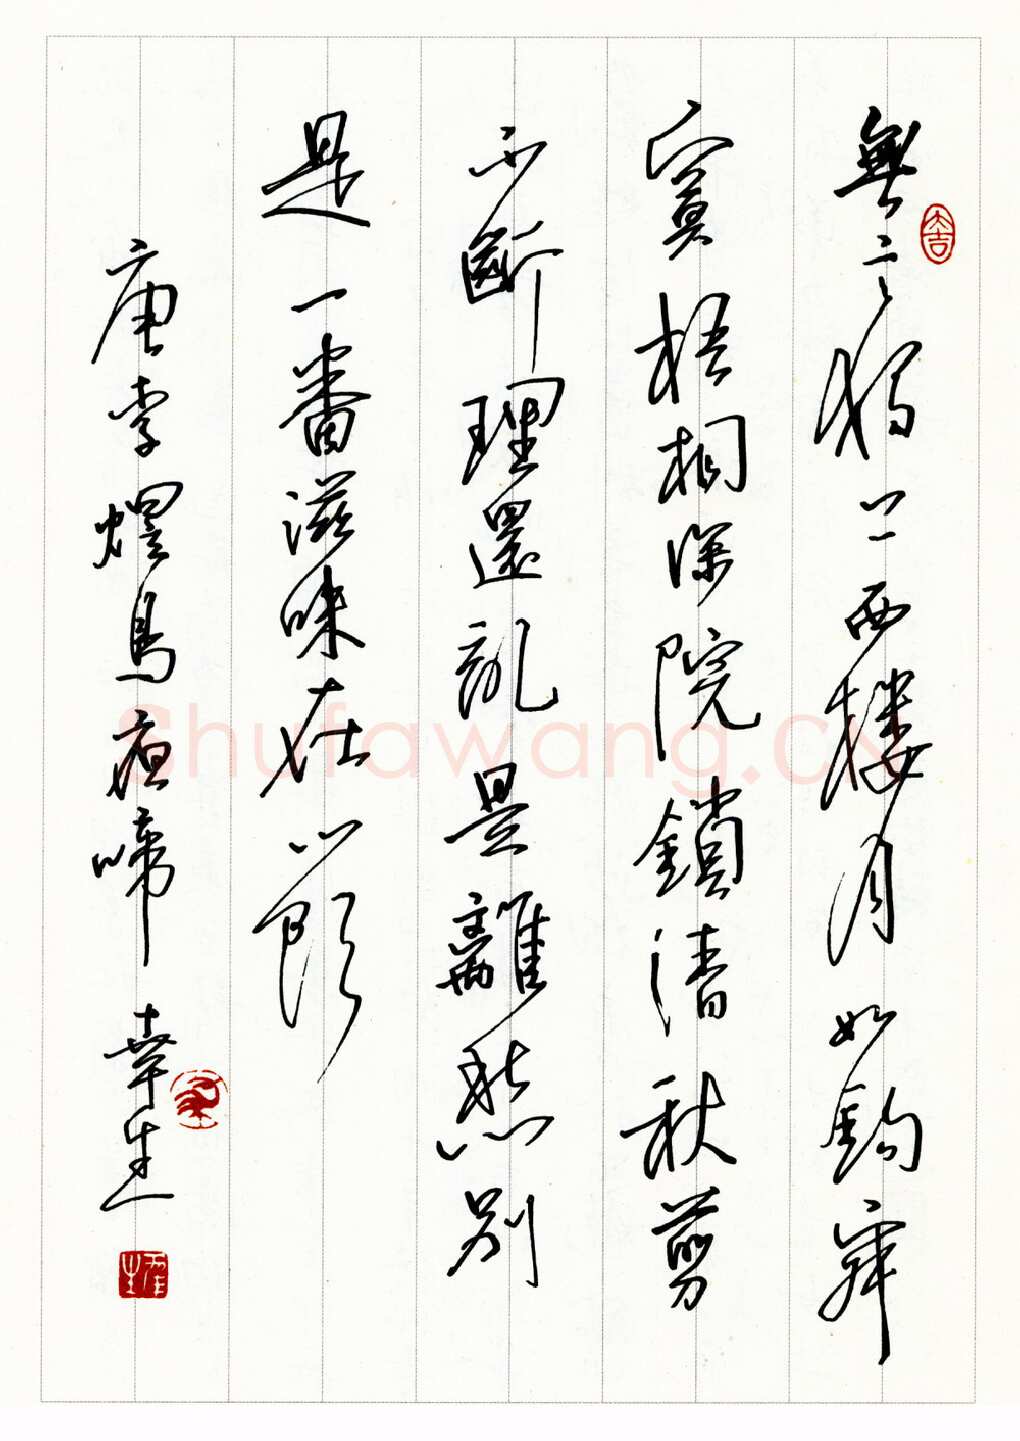 無言獨上西樓月如鉤寂
寞梧桐深院鎖清秋剪
不斷理還亂是離愁別
是一番滋味在心頭
唐李煜烏夜啼 幸生
大吉
Shufawang.cn